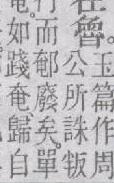 在魯。
玉篇作周
公所誅叛
行而郺廢矣。單
奄。如踐奄、歸自